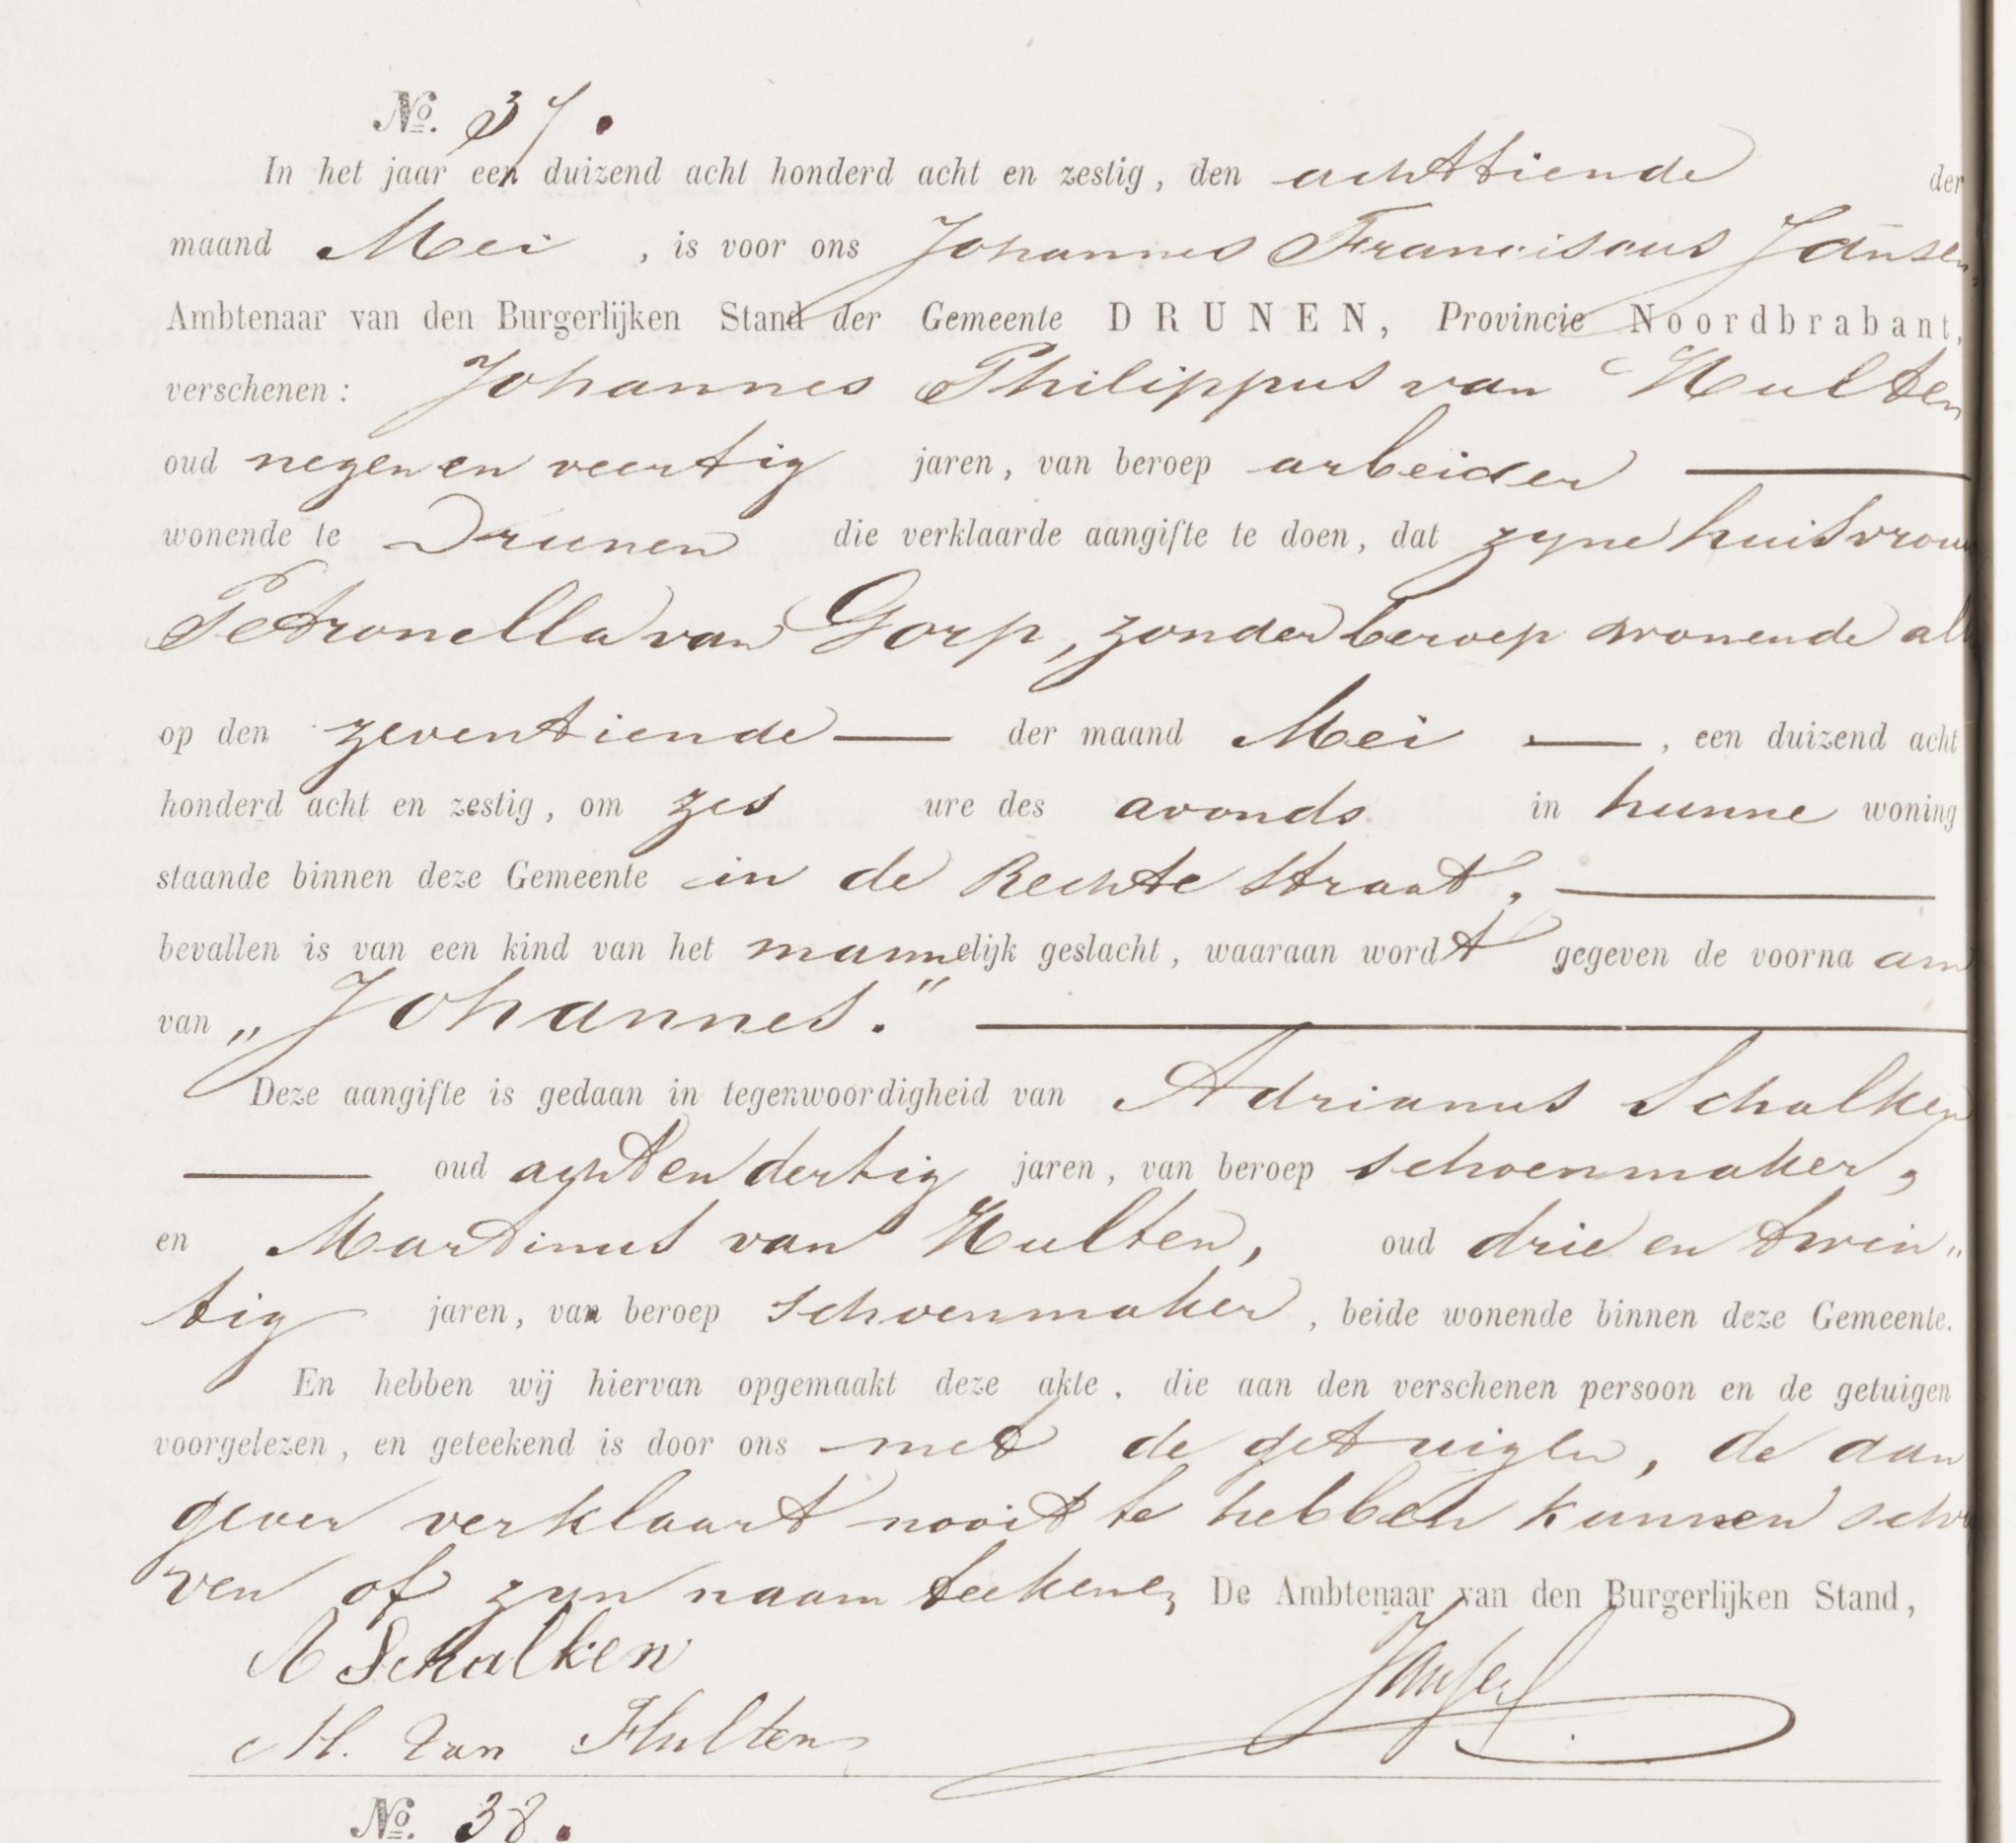 No. 37.
In het jaar een duizend acht honderd acht en zestig, den achttiende der
maand Mei , is voor ons Johannes Franciscus Jansen,
Ambtenaar van den Burgerlijken Stand der Gemeente DRUNEN, Provincie Noordbrabant,
verschenen: Johannes Philippus van Hulten
oud negen en veertig jaren, van beroep arbeider
wonende te Drunen die verklaarde aangifte te doen, dat zyne huisvrouw
Petronella van Gorp, zonder beroep wonende al
op den zeventiende der maand Mei , een duizend acht
honderd acht en zestig, om zes ure des avonds in hunne woning
staande binnen deze Gemeente in de Rechte straat,
bevallen is van een kind van het mannelijk geslacht, waaraan wordt gegeven de voorna am
van „Johannes."
Deze aangifte is gedaan in tegenwoordigheid van Adrianus Schalken
oud acht en dertig jaren, van beroep schoenmaker,
en Martinus van Hulten, oud drie en twin„
tig jaren, van beroep schoenmaker, beide wonende binnen deze Gemeente.
En hebben wij hiervan opgemaakt deze akte, die aan den verschenen persoon en de getuigen
voorgelezen, en geteekend is door ons met de getuigen, de aan
gever verklaart nooit te hebben kunnen schry
ven of zyn naam teekenen De Ambtenaar van den Burgerlijken Stand,
A Schalken
Jansen
M. van Hulten
No. 38.